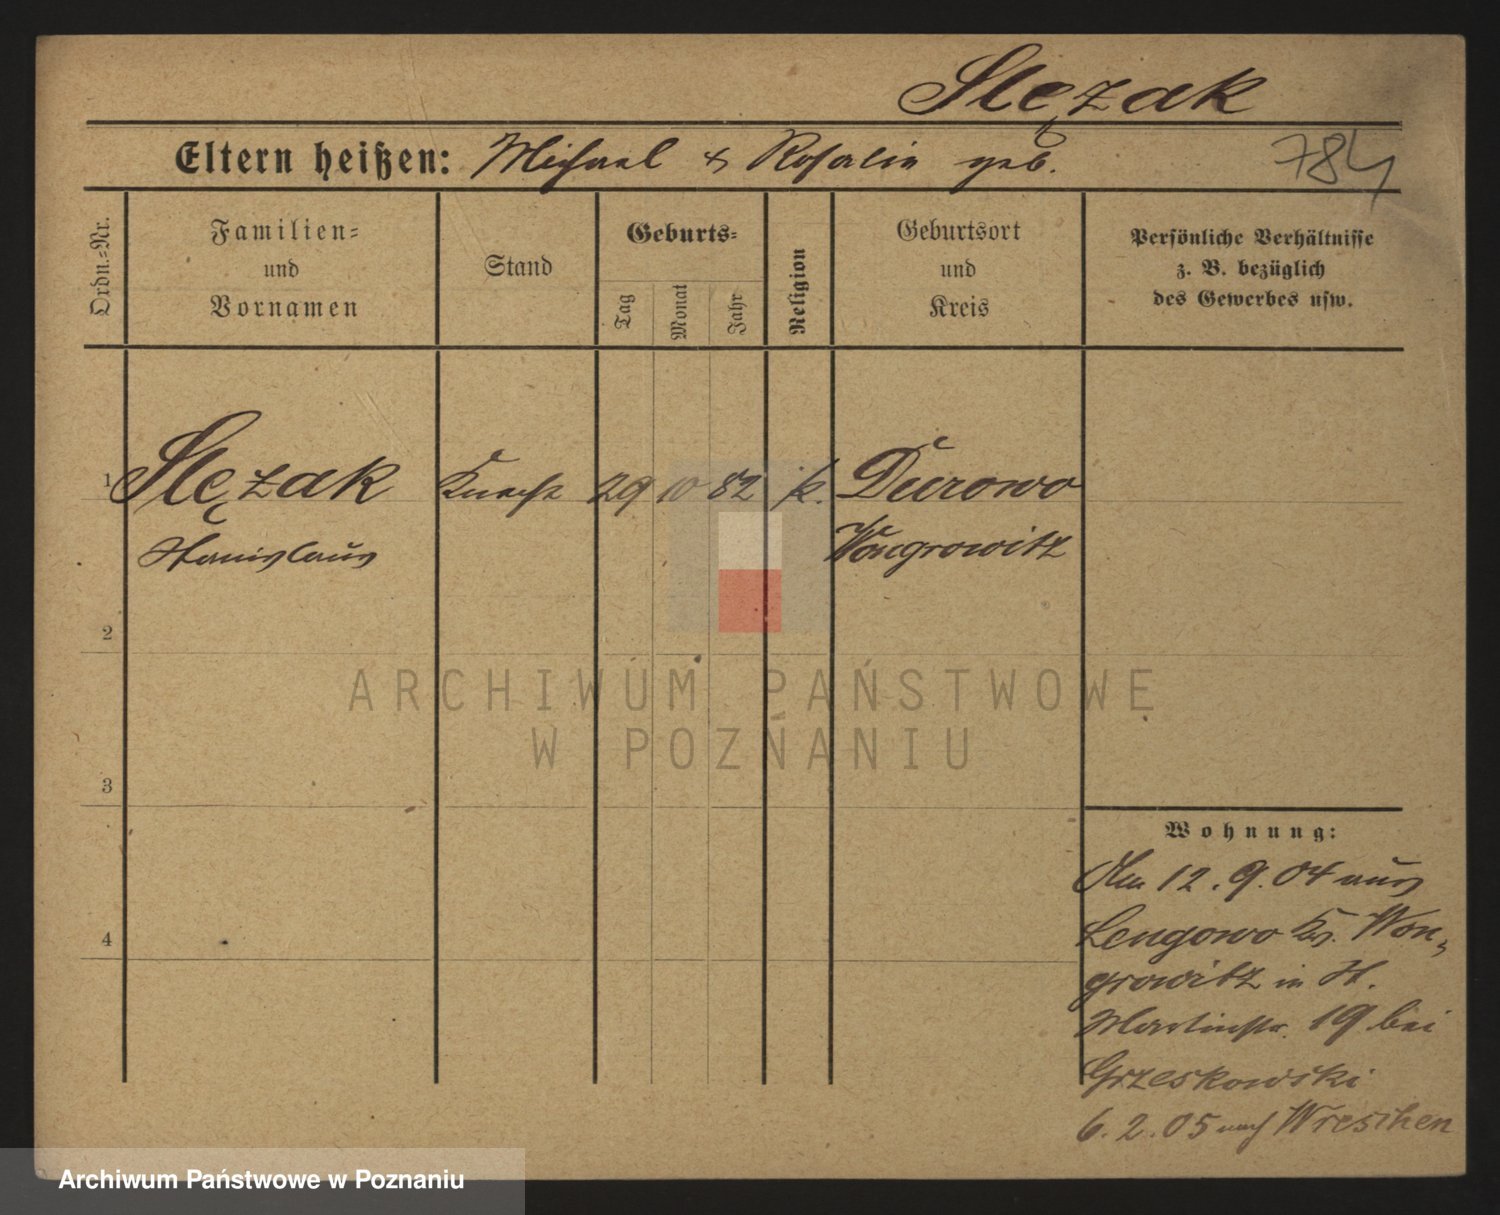 Slęzak
Eltern heißen: Michael & Rosalie geb.
784
Ordn.=Nr.
Familien=
und
Vornamen
Stand
Geburts=
Tag
Monat
Jahr
Religion
Geburtsort
und
Kreis
Persönliche Verhältnisse
z. B. bezüglich
des Gewerbes usw.
1 Slęzak Knecht 29 10 82 k. Durowo
Stanislaus Wongrowitz
2
3
4
Wohnung:
Am 12. 9. 04 aus
Lengowo Kr. Won-
growitz in St.
Martinstr. 19 bei
Grzeskowski
6. 2. 05 nach Wreschen
ARCHIWUM PAŃSTWOWE
W POZNANIU
Archiwum Państwowe w Poznaniu